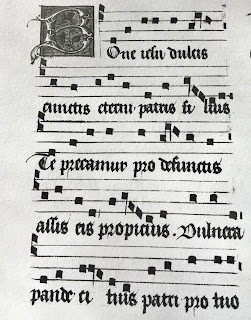 Bone iesu dulcis
cunctis eterni patris fi lius
Te precamur pro defunctis
assis eis propicius. Vulnera
pande ci tius patri pro tuo